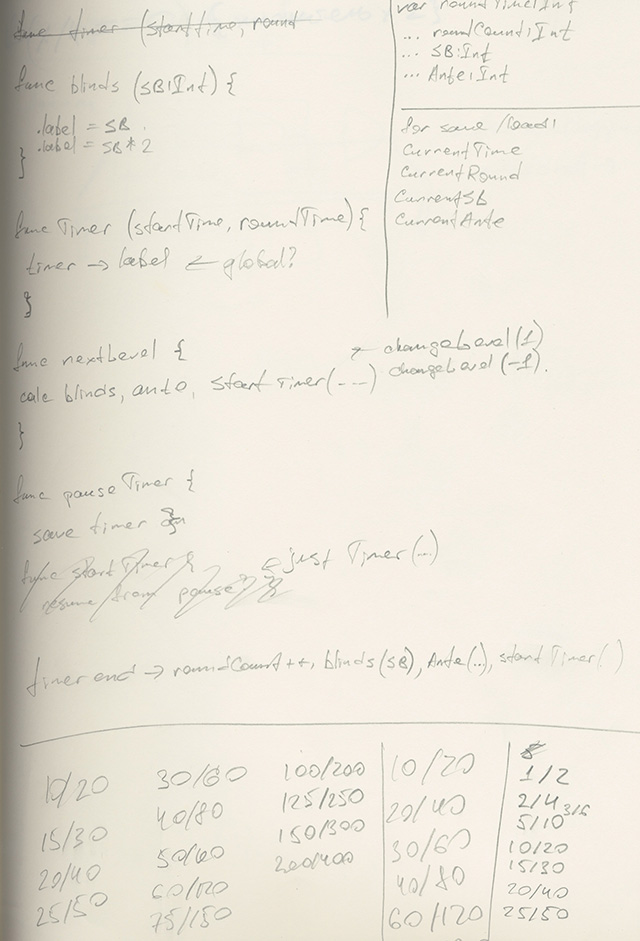 func timer (startTime, round
func blinds (SB:Int) {
.label = SB
.label = SB * 2
}
func Timer (startTime, roundTime) {
timer → label ← global?
}
func nextLevel {
calc blinds, ante, startTimer(---)
← changeLevel(1)
changeLevel(-1).
}
func pauseTimer {
save timer }
func startTimer {
resume from pause }
just Timer(...)
timer end → roundCount++, blinds(SB), Ante(...), startTimer( )
var roundTime:Int
... roundCount:Int
... SB:Int
... Ante:Int
for save /load:
CurrentTime
CurrentRound
CurrentSb
CurrentAnte
10/20
15/30
20/40
25/50
30/60
40/80
50/60
60/120
75/150
100/200
125/250
150/300
200/400
10/20
20/40
30/60
40/80
60/120
1/2
2/4
3/6
5/10
10/20
15/30
20/40
25/50